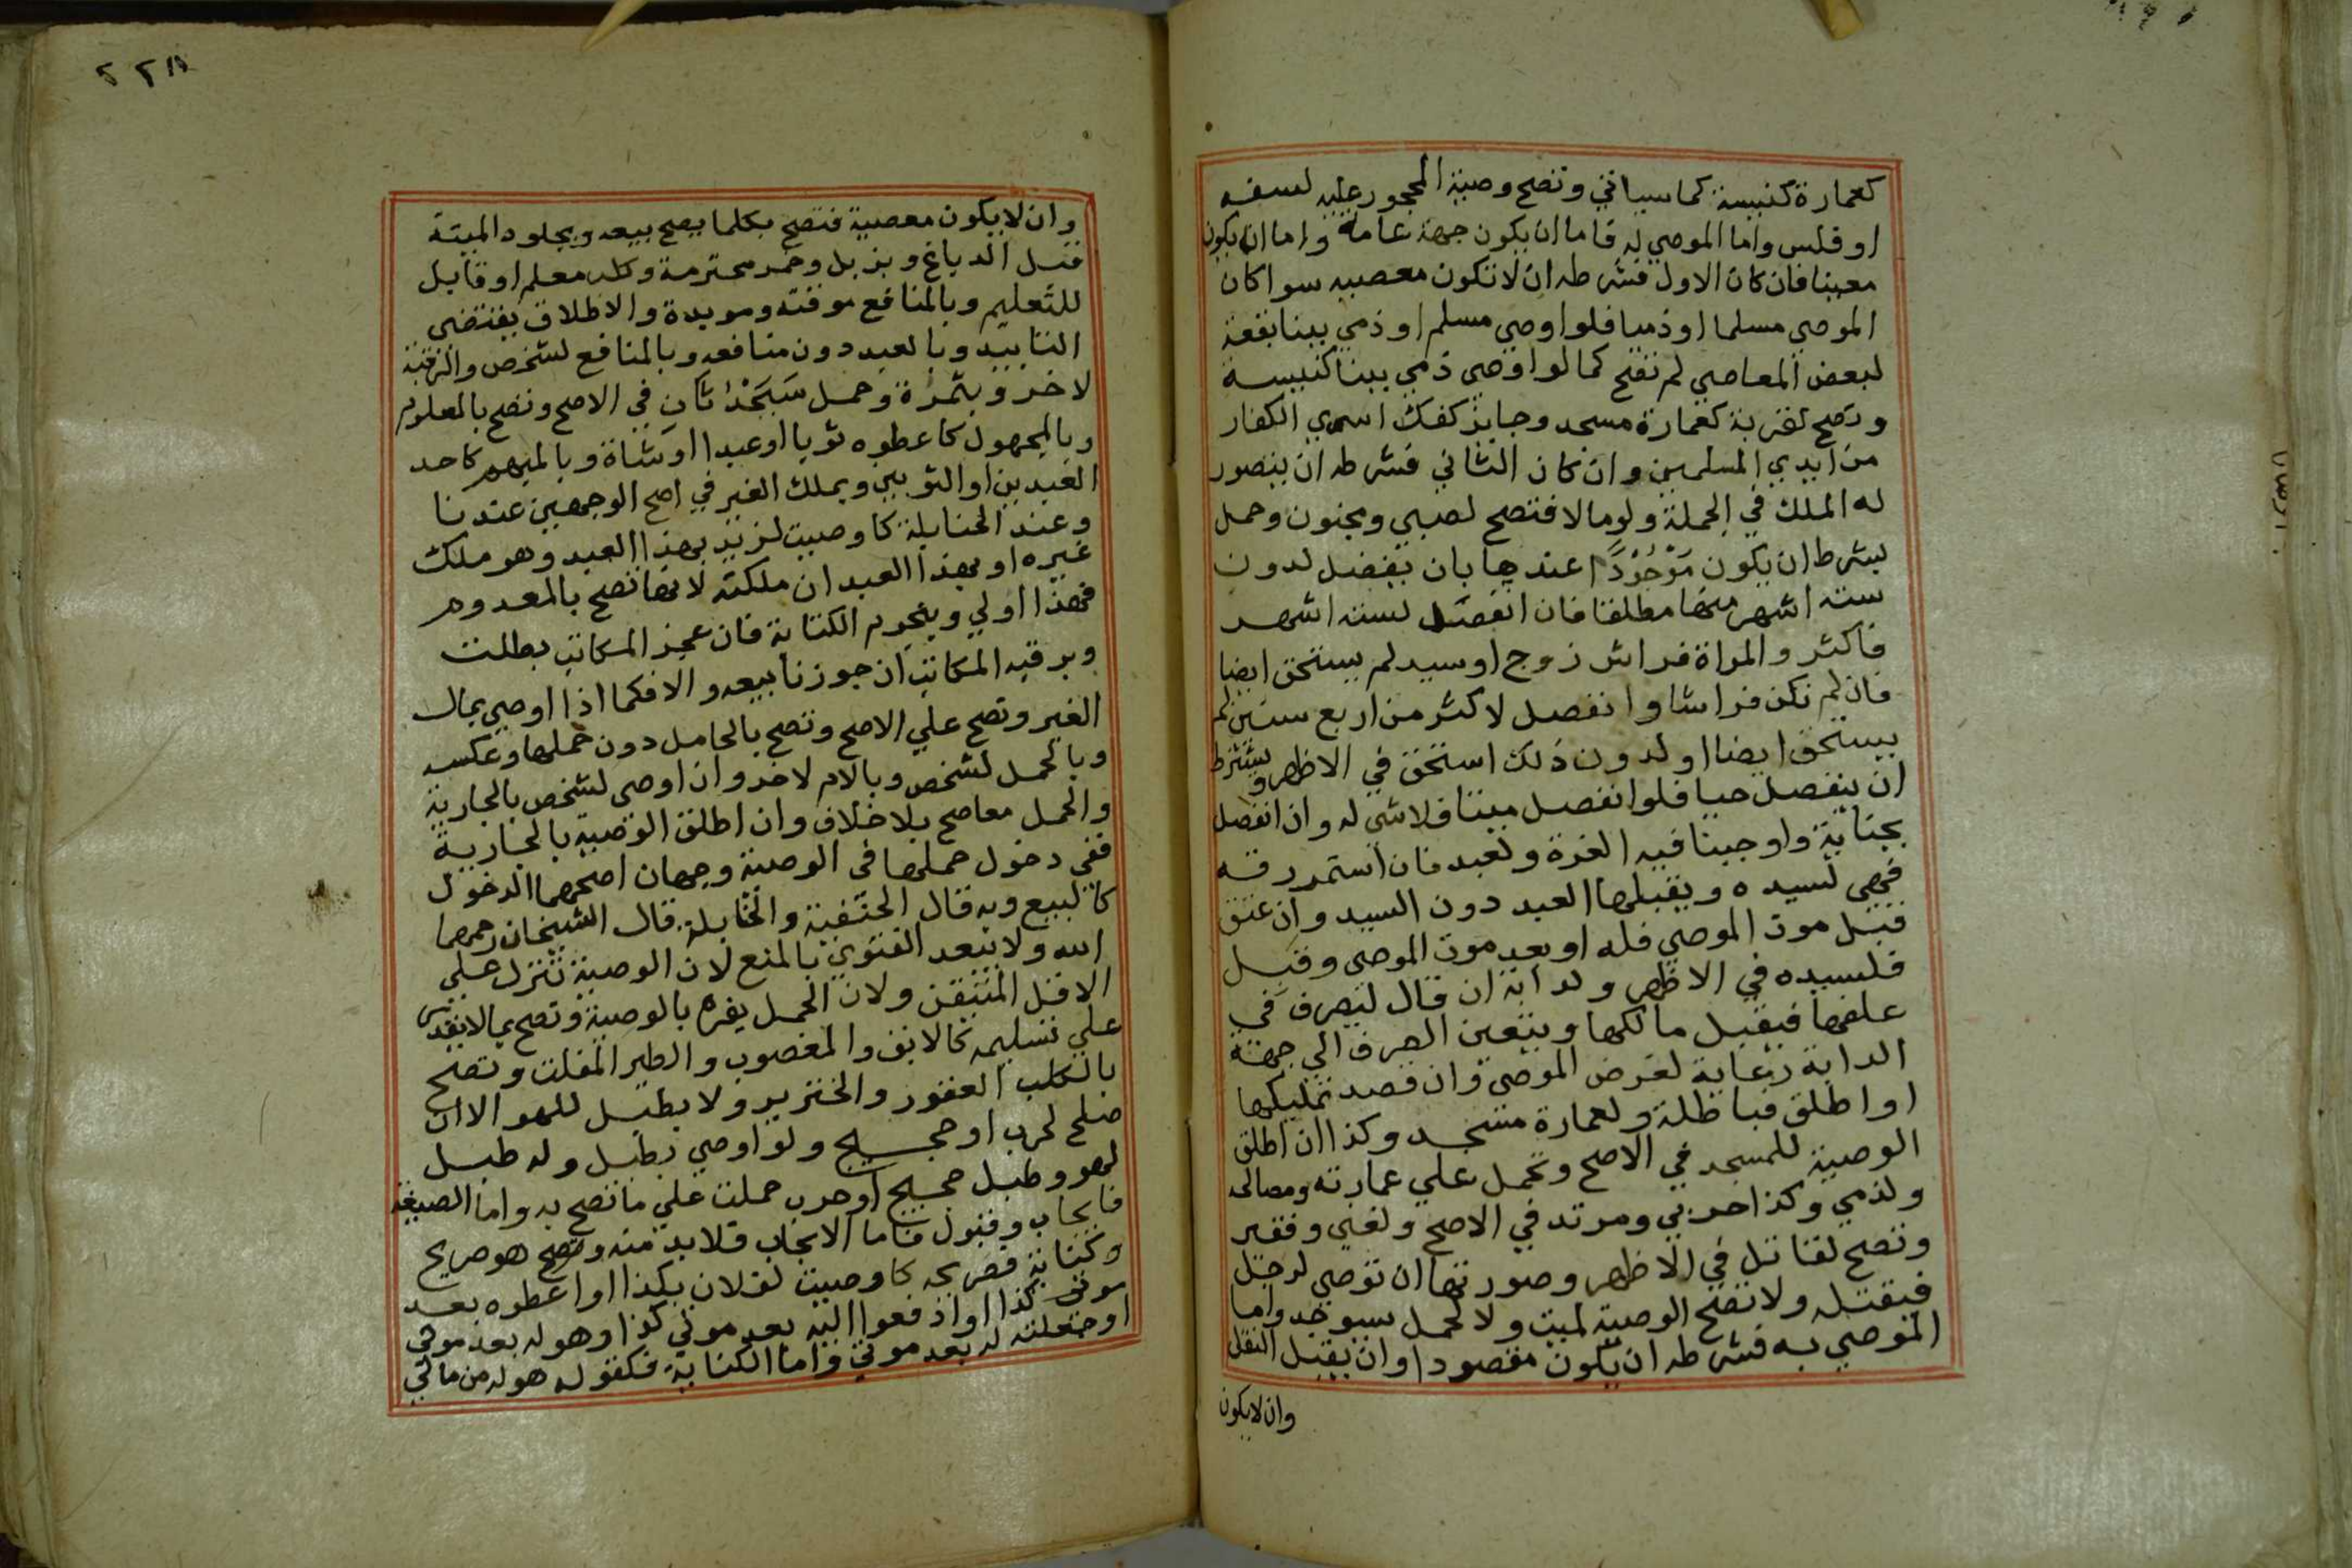 كعمارة كنيسة كما سياتي وتصح وصية المحجور عليه لسفه
او فلس واما الموصي له فاما ان يكون جهة عامة واما ان يكون
معينا فان كان الاول فشرطه ان لا تكون معصيه سوا كان
الموصي مسلما او ذميا فلو اوصي مسلم او ذمي ببنا بقعة
لبعض المعاصي لم تصح كما لو اوصي ذمي ببنا كنيسة
وتصح لقربة كعمارة مسجد وجايز كفك اسري الكفار
من ايدي المسلمين وان كان الثاني فشرطه ان يتصور
له الملك في الجملة ولو مالا فتصح لصبي ومجنون وحمل
بشرط ان يكون مَوْجُوْدًا عندها بان يفصل لدون
سته اشهر منها مطلقا فان انفصل لسته اشهر
فاكثر والمراة فراش زوج او سيد لم يستحق ايضا
فان لم تكن فراشا وانفصل لاكثر من اربع سنين لم
يستحق ايضا او لدون ذلك استحق في الاظهر ويشترط
ان ينفصل حيا فلو انفصل ميتا فلا شي له وان انفصل
بجناية واوجبنا فيه الغرة ولعبد فان استمر رقه
فهي لسيده ويقبلها العبد دون السيد وان عتق
قبل موت الموصي فله او بعد موت الموصي وقبل
فلسيده في الاظهر ولدابة ان قال ليصرف في
علفها فيقبل مالكها ويتعين الصرف الي جهة
الدابة رعاية لغرض الموصي وان قصد تمليكها
او اطلق فباطلة ولعمارة مسجد وكذا ان اطلق
الوصية للمسجد في الاصح وتحمل علي عمارته ومصالحه
ولذمي وكذا حربي ومرتد في الاصح ولغني وفقير
وتصح لقاتل في الاظهر وصورتها ان توصي لرجل
فيقتله ولا تصح الوصية لميت ولا لحمل سيوجد واما
الموصي به فشرطه ان يكون مقصودا وان يقبل النقل
وان لا يكون
٢٢٨
وان لا يكون معصية فتصح بكلما يصح بيعه وبجلود الميتة
قبل الدباغ وبزبل وخمر محترمة وكلب معلم او قابل
للتعليم وبالمنافع موقته ومويدة والاطلاق يقتضي
التابيد وبالعبد دون منافعه وبالمنافع لشخص والرقبة
لاخر وبثمرة وحمل سَيَحْدُثَانِ في الاصح وتصح بالمعلوم
وبالمجهول كاعطوه ثوبا او عبدا او شاة وبالمبهم كاحد
العبدين او الثوبين وبملك الغير في اصح الوجهين عندنا
وعند الحنابلة كاوصيت لزيد بهذا العبد وهو ملك
غيره او بهذا العبد ان ملكته لانها تصح بالمعدوم
فهذا اولي وبنجوم الكتابة فان عجز المكاتب بطلت
وبرقبه المكاتب ان جوزنا بيعه والا فكما اذا اوصي بمال
الغير وتصح علي الاصح وتصح بالحامل دون حملها وعكسه
وبالحمل لشخص وبالام لاخر وان اوصي لشخص بالجارية
والحمل معا صح بلا خلاف وان اطلق الوصية بالجارية
ففي دخول حملها في الوصية وجهان اصحهما الدخول
كالبيع وبه قال الحنفية والحنابلة قال الشيخان رحمهما
الله ولا يبعد الفتوي بالمنع لان الوصية تنزل علي
الاقل المتيقن ولان الحمل يفرد بالوصية وتصح بما لا يقدر
علي تسليمه كالابق والمغصوب والطير المفلت وتصح
بالكلب العقور والخنزير ولا بطبل للهو الا ان
صلح لحرب او حجيج ولو اوصي بطبل وله طبل
لهو وطبل حجيج او حرب حملت علي ما تصح به واما الصيغة
فايجاب وقبول فاما الايجاب فلا بد منه وتصح هو صريح
وكناية فصريحه كاوصيت لفلان بكذا او اعطوه بعد
موتي كذا او ادفعوا اليه بعد موتي كذا او هو له بعد موتي
او جعلته له بعد موتي واما الكناية فكقوله هو له من مالي